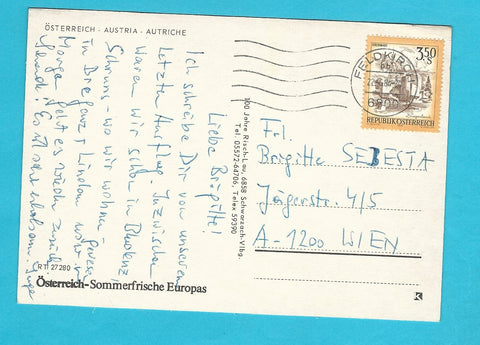 ÖSTERREICH - AUSTRIA - AUTRICHE
Liebe Brigitte!
Ich schreibe Dir von unserem
letzten Ausflug. Inzwischen
waren wir schon in Bludenz
Schruns, wo wir wohnen
in Bregenz, Lindau
Morgen geht es wieder zurück
Es ist sehr erholsam. Inge
RTI 27280
Österreich-Sommerfrische Europas
300 Jahre Risch-Lau, 6858 Schwarzach-Vlbg.
Tel. 05572-64706, Telex 59390
FELDKIRCH
6800
3.50
S
REPUBLIK ÖSTERREICH
Frl.
Brigitte SEBESTA
Jägerstr. 4/5
A-1200 WIEN